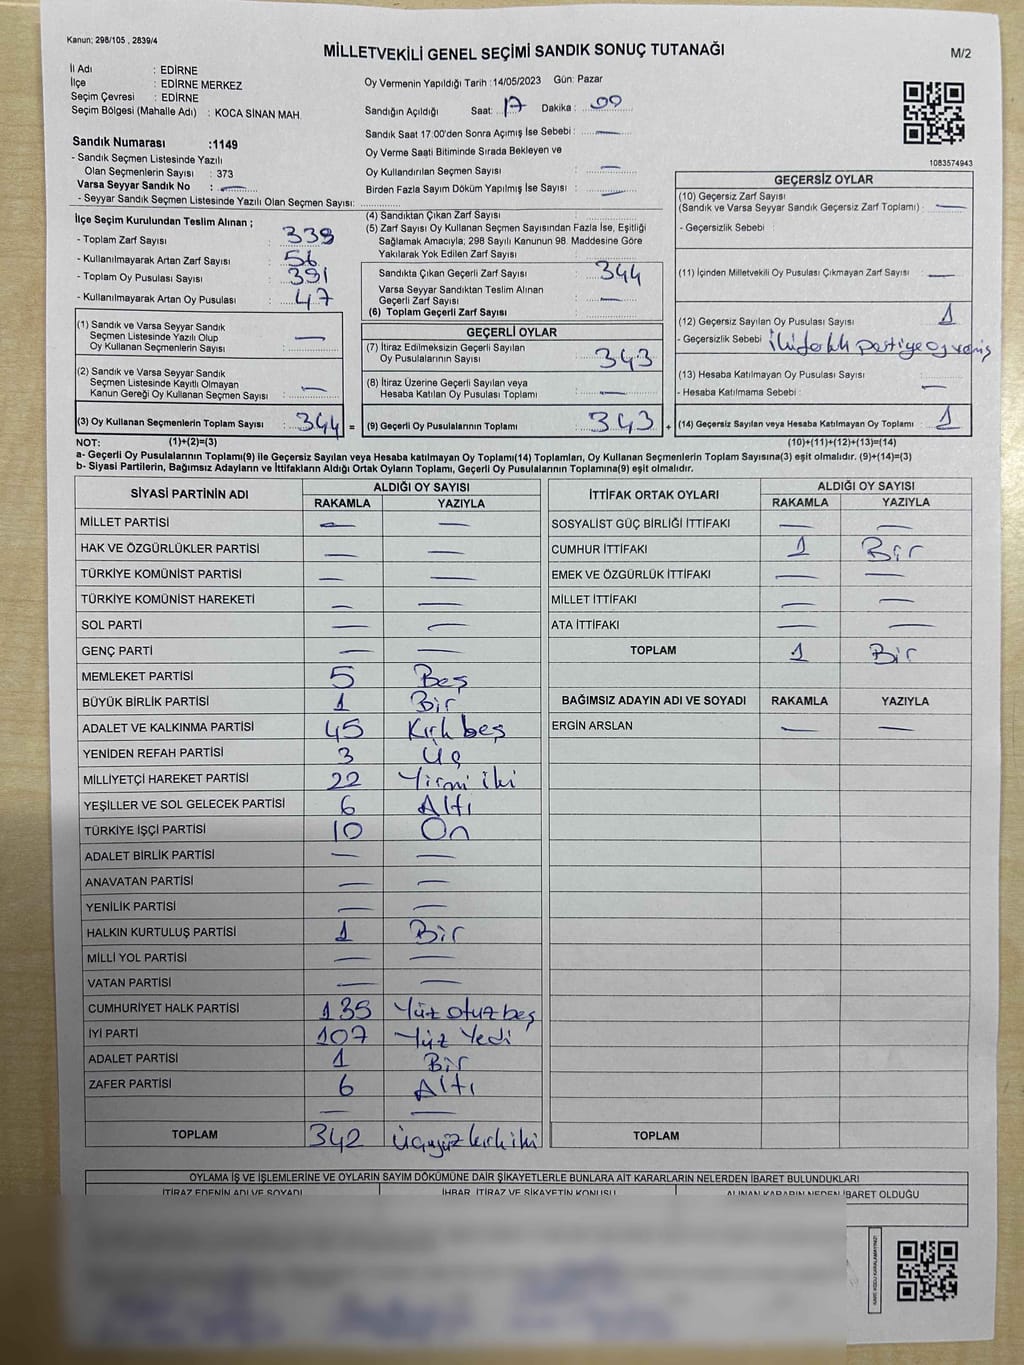 Kanun: 298/105 , 2839/4
MİLLETVEKİLİ GENEL SEÇİMİ SANDIK SONUÇ TUTANAĞI
M/2
İl Adı : EDİRNE
İlçe : EDİRNE MERKEZ
Seçim Çevresi : EDİRNE
Seçim Bölgesi (Mahalle Adı) : KOCA SİNAN MAH.
Oy Vermenin Yapıldığı Tarih :14/05/2023 Gün: Pazar
Sandığın Açıldığı Saat: 17 Dakika : 00
Sandık Saat 17:00'den Sonra Açımış İse Sebebi : —
Oy Verme Saati Bitiminde Sırada Bekleyen ve
Oy Kullandırılan Seçmen Sayısı —
Birden Fazla Sayım Döküm Yapılmış İse Sayısı —
1083574943
Sandık Numarası :1149
- Sandık Seçmen Listesinde Yazılı
Olan Seçmenlerin Sayısı : 373
Varsa Seyyar Sandık No : —
- Seyyar Sandık Seçmen Listesinde Yazılı Olan Seçmen Sayısı:
İlçe Seçim Kurulundan Teslim Alınan ;
- Toplam Zarf Sayısı
- Kullanılmayarak Artan Zarf Sayısı : 56
- Toplam Oy Pusulası Sayısı : 391
- Kullanılmayarak Artan Oy Pusulası : 47
(1) Sandık ve Varsa Seyyar Sandık
Seçmen Listesinde Yazılı Olup
Oy Kullanan Seçmenlerin Sayısı : —
(2) Sandık ve Varsa Seyyar Sandık
Seçmen Listesinde Kayıtlı Olmayan
Kanun Gereği Oy Kullanan Seçmen Sayısı : —
(3) Oy Kullanan Seçmenlerin Toplam Sayısı : 344 =
(4) Sandıktan Çıkan Zarf Sayısı :
(5) Zarf Sayısı Oy Kullanan Seçmen Sayısından Fazla İse, Eşitliği
Sağlamak Amacıyla; 298 Sayılı Kanunun 98. Maddesine Göre
Yakılarak Yok Edilen Zarf Sayısı :
Sandıkta Çıkan Geçerli Zarf Sayısı : 344
Varsa Seyyar Sandıktan Teslim Alınan
Geçerli Zarf Sayısı : —
(6) Toplam Geçerli Zarf Sayısı :
GEÇERLİ OYLAR
(7) İtiraz Edilmeksizin Geçerli Sayılan
Oy Pusulalarının Sayısı : 343
(8) İtiraz Üzerine Geçerli Sayılan veya
Hesaba Katılan Oy Pusulası Toplamı : —
(9) Geçerli Oy Pusulalarının Toplamı : 343 +
GEÇERSİZ OYLAR
(10) Geçersiz Zarf Sayısı
(Sandık ve Varsa Seyyar Sandık Geçersiz Zarf Toplamı) : —
- Geçersizlik Sebebi :
(11) İçinden Milletvekili Oy Pusulası Çıkmayan Zarf Sayısı : —
(12) Geçersiz Sayılan Oy Pusulası Sayısı : 1
- Geçersizlik Sebebi : İki farklı partiye oy veriş
(13) Hesaba Katılmayan Oy Pusulası Sayısı :
- Hesaba Katılmama Sebebi : —
(14) Geçersiz Sayılan veya Hesaba Katılmayan Oy Toplamı : 1
NOT: (1)+(2)=(3) (10)+(11)+(12)+(13)=(14)
a- Geçerli Oy Pusulalarının Toplamı(9) ile Geçersiz Sayılan veya Hesaba katılmayan Oy Toplamı(14) Toplamları, Oy Kullanan Seçmenlerin Toplam Sayısına(3) eşit olmalıdır. (9)+(14)=(3)
b- Siyasi Partilerin, Bağımsız Adayların ve İttifakların Aldığı Ortak Oyların Toplamı, Geçerli Oy Pusulalarının Toplamına(9) eşit olmalıdır.
SİYASİ PARTİNİN ADI ALDIĞI OY SAYISI
RAKAMLA YAZIYLA
MİLLET PARTİSİ — —
HAK VE ÖZGÜRLÜKLER PARTİSİ — —
TÜRKİYE KOMÜNİST PARTİSİ — —
TÜRKİYE KOMÜNİST HAREKETİ — —
SOL PARTİ — —
GENÇ PARTİ — —
MEMLEKET PARTİSİ 5 Beş
BÜYÜK BİRLİK PARTİSİ 1 Bir
ADALET VE KALKINMA PARTİSİ 45 Kırk beş
YENİDEN REFAH PARTİSİ 3 Üç
MİLLİYETÇİ HAREKET PARTİSİ 22 Yirmi iki
YEŞİLLER VE SOL GELECEK PARTİSİ 6 Altı
TÜRKİYE İŞÇİ PARTİSİ 10 On
ADALET BİRLİK PARTİSİ — —
ANAVATAN PARTİSİ — —
YENİLİK PARTİSİ — —
HALKIN KURTULUŞ PARTİSİ 1 Bir
MİLLİ YOL PARTİSİ — —
VATAN PARTİSİ — —
CUMHURİYET HALK PARTİSİ 135 Yüz otuz beş
İYİ PARTİ 107 Yüz Yedi
ADALET PARTİSİ 1 Bir
ZAFER PARTİSİ 6 Altı
— —
TOPLAM 342 Üçyüz kırk iki
İTTİFAK ORTAK OYLARI ALDIĞI OY SAYISI
RAKAMLA YAZIYLA
SOSYALİST GÜÇ BİRLİĞİ İTTİFAKI — —
CUMHUR İTTİFAKI 1 Bir
EMEK VE ÖZGÜRLÜK İTTİFAKI — —
MİLLET İTTİFAKI — —
ATA İTTİFAKI — —
TOPLAM 1 Bir
BAĞIMSIZ ADAYIN ADI VE SOYADI RAKAMLA YAZIYLA
ERGİN ARSLAN — —
TOPLAM
OYLAMA İŞ VE İŞLEMLERİNE VE OYLARIN SAYIM DÖKÜMÜNE DAİR ŞİKAYETLERLE BUNLARA AİT KARARLARIN NELERDEN İBARET BULUNDUKLARI
İTİRAZ EDENİN ADI VE SOYADI İHBAR, İTİRAZ VE ŞİKAYETİN KONUSU ALINAN KARARIN NEDEN İBARET OLDUĞU